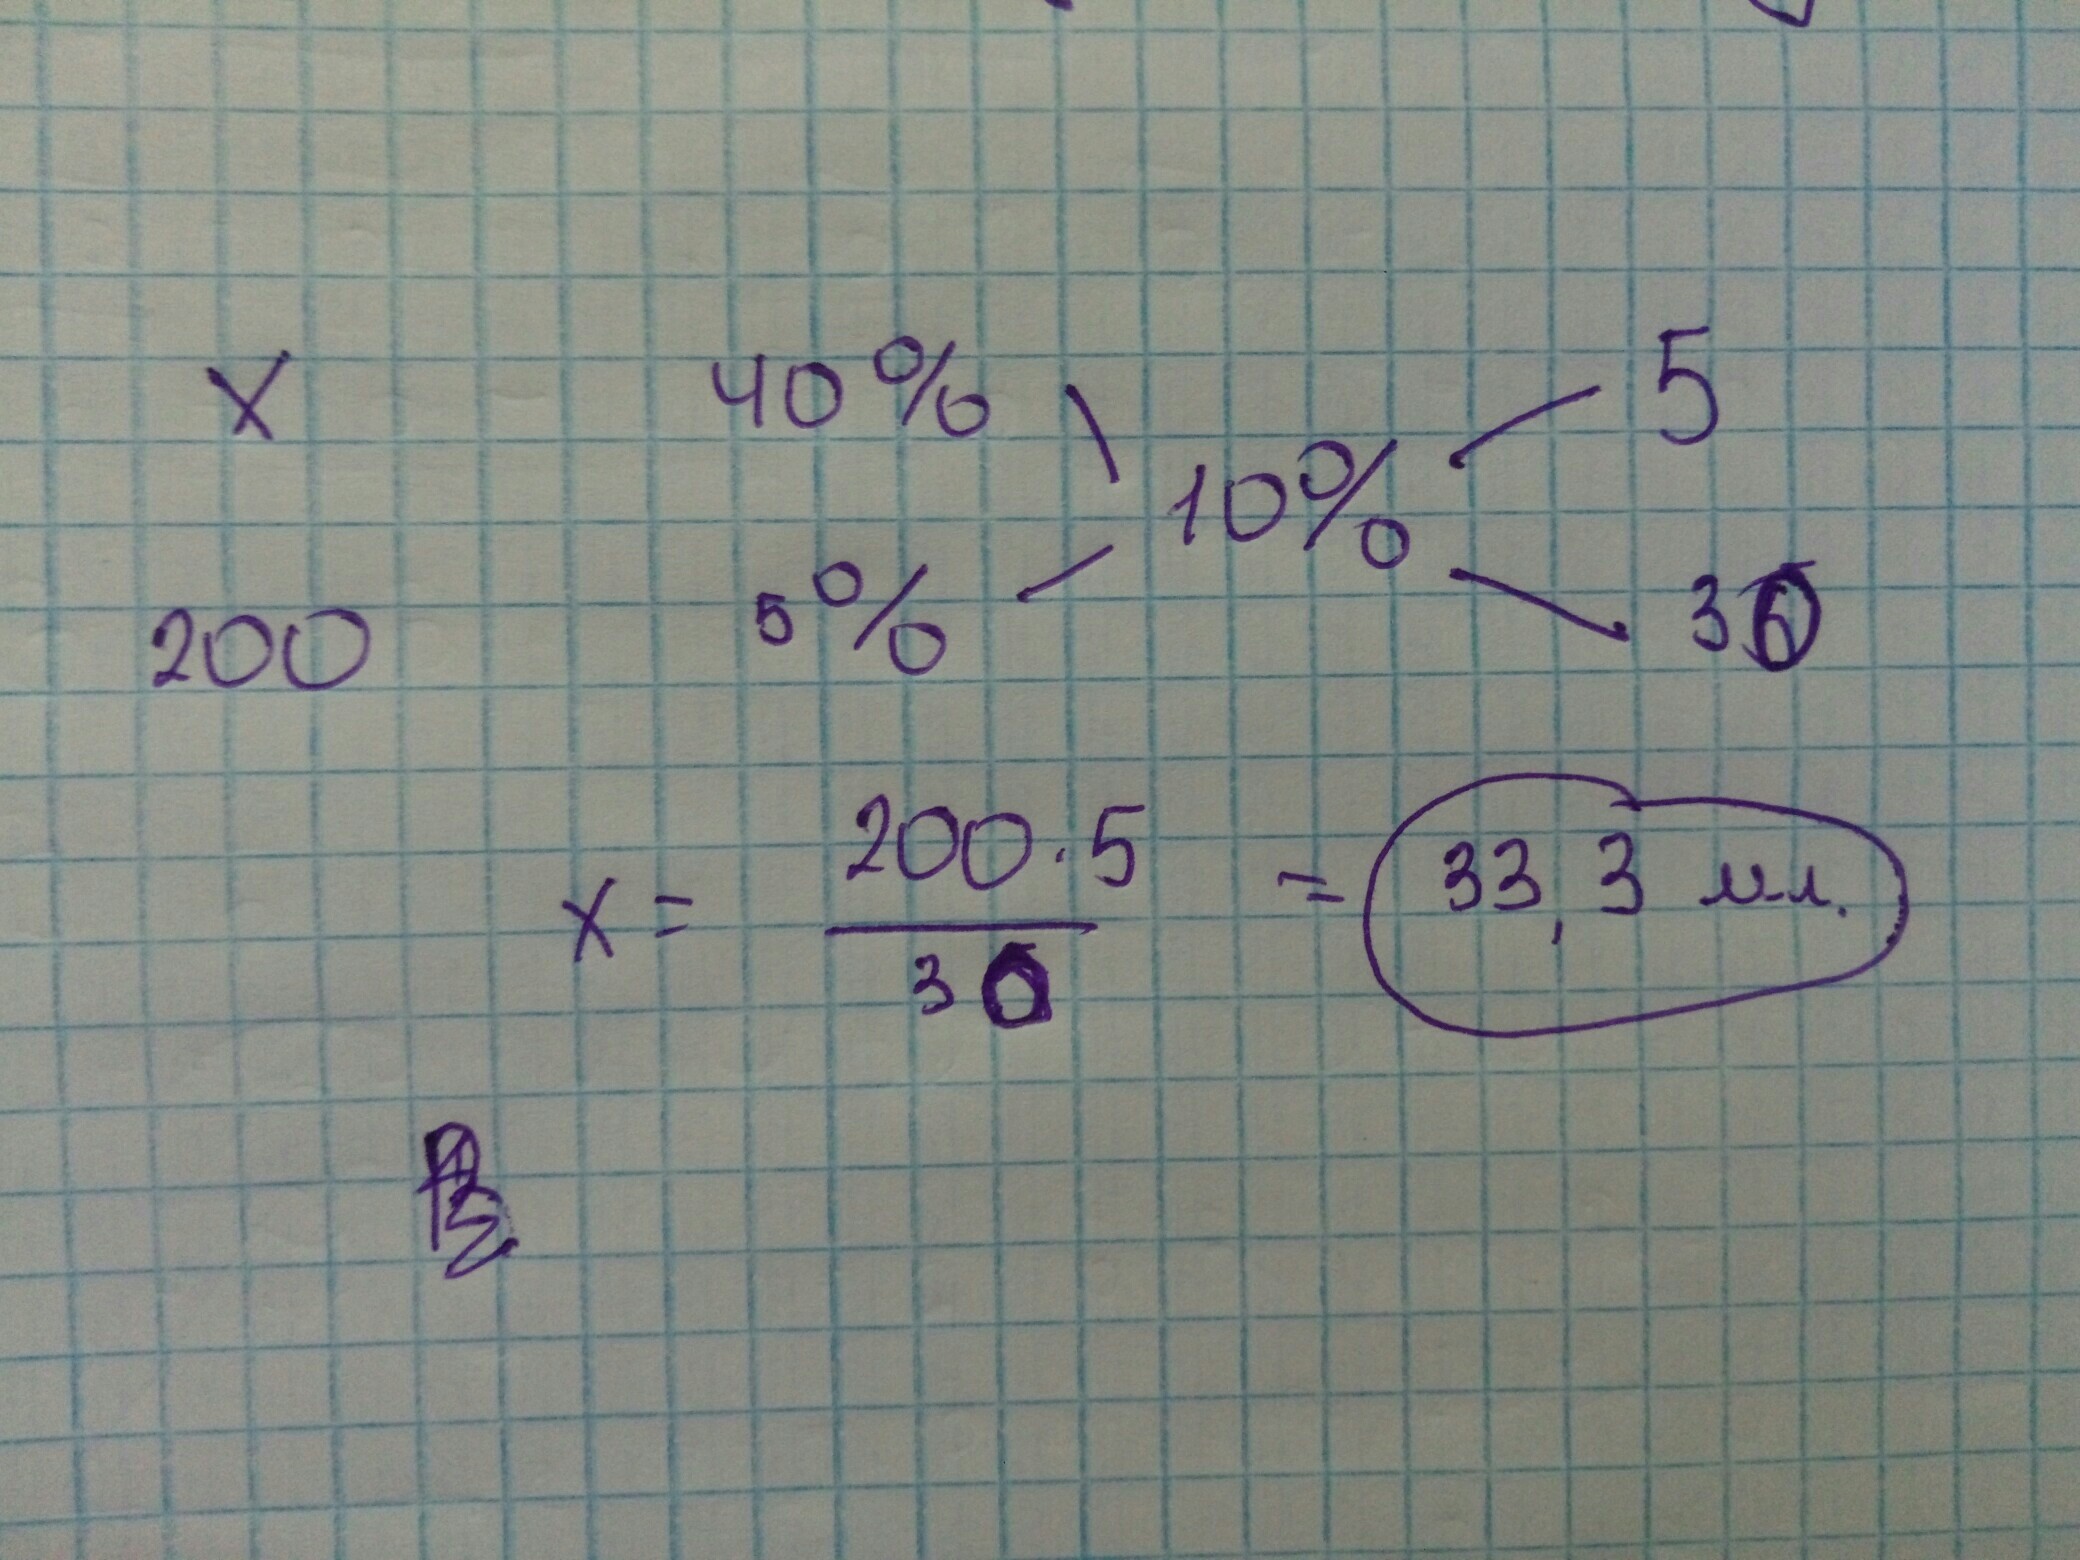 x 40% 5
10%
200 5% 30
x = 200·5 / 30 = 33,3 мл.